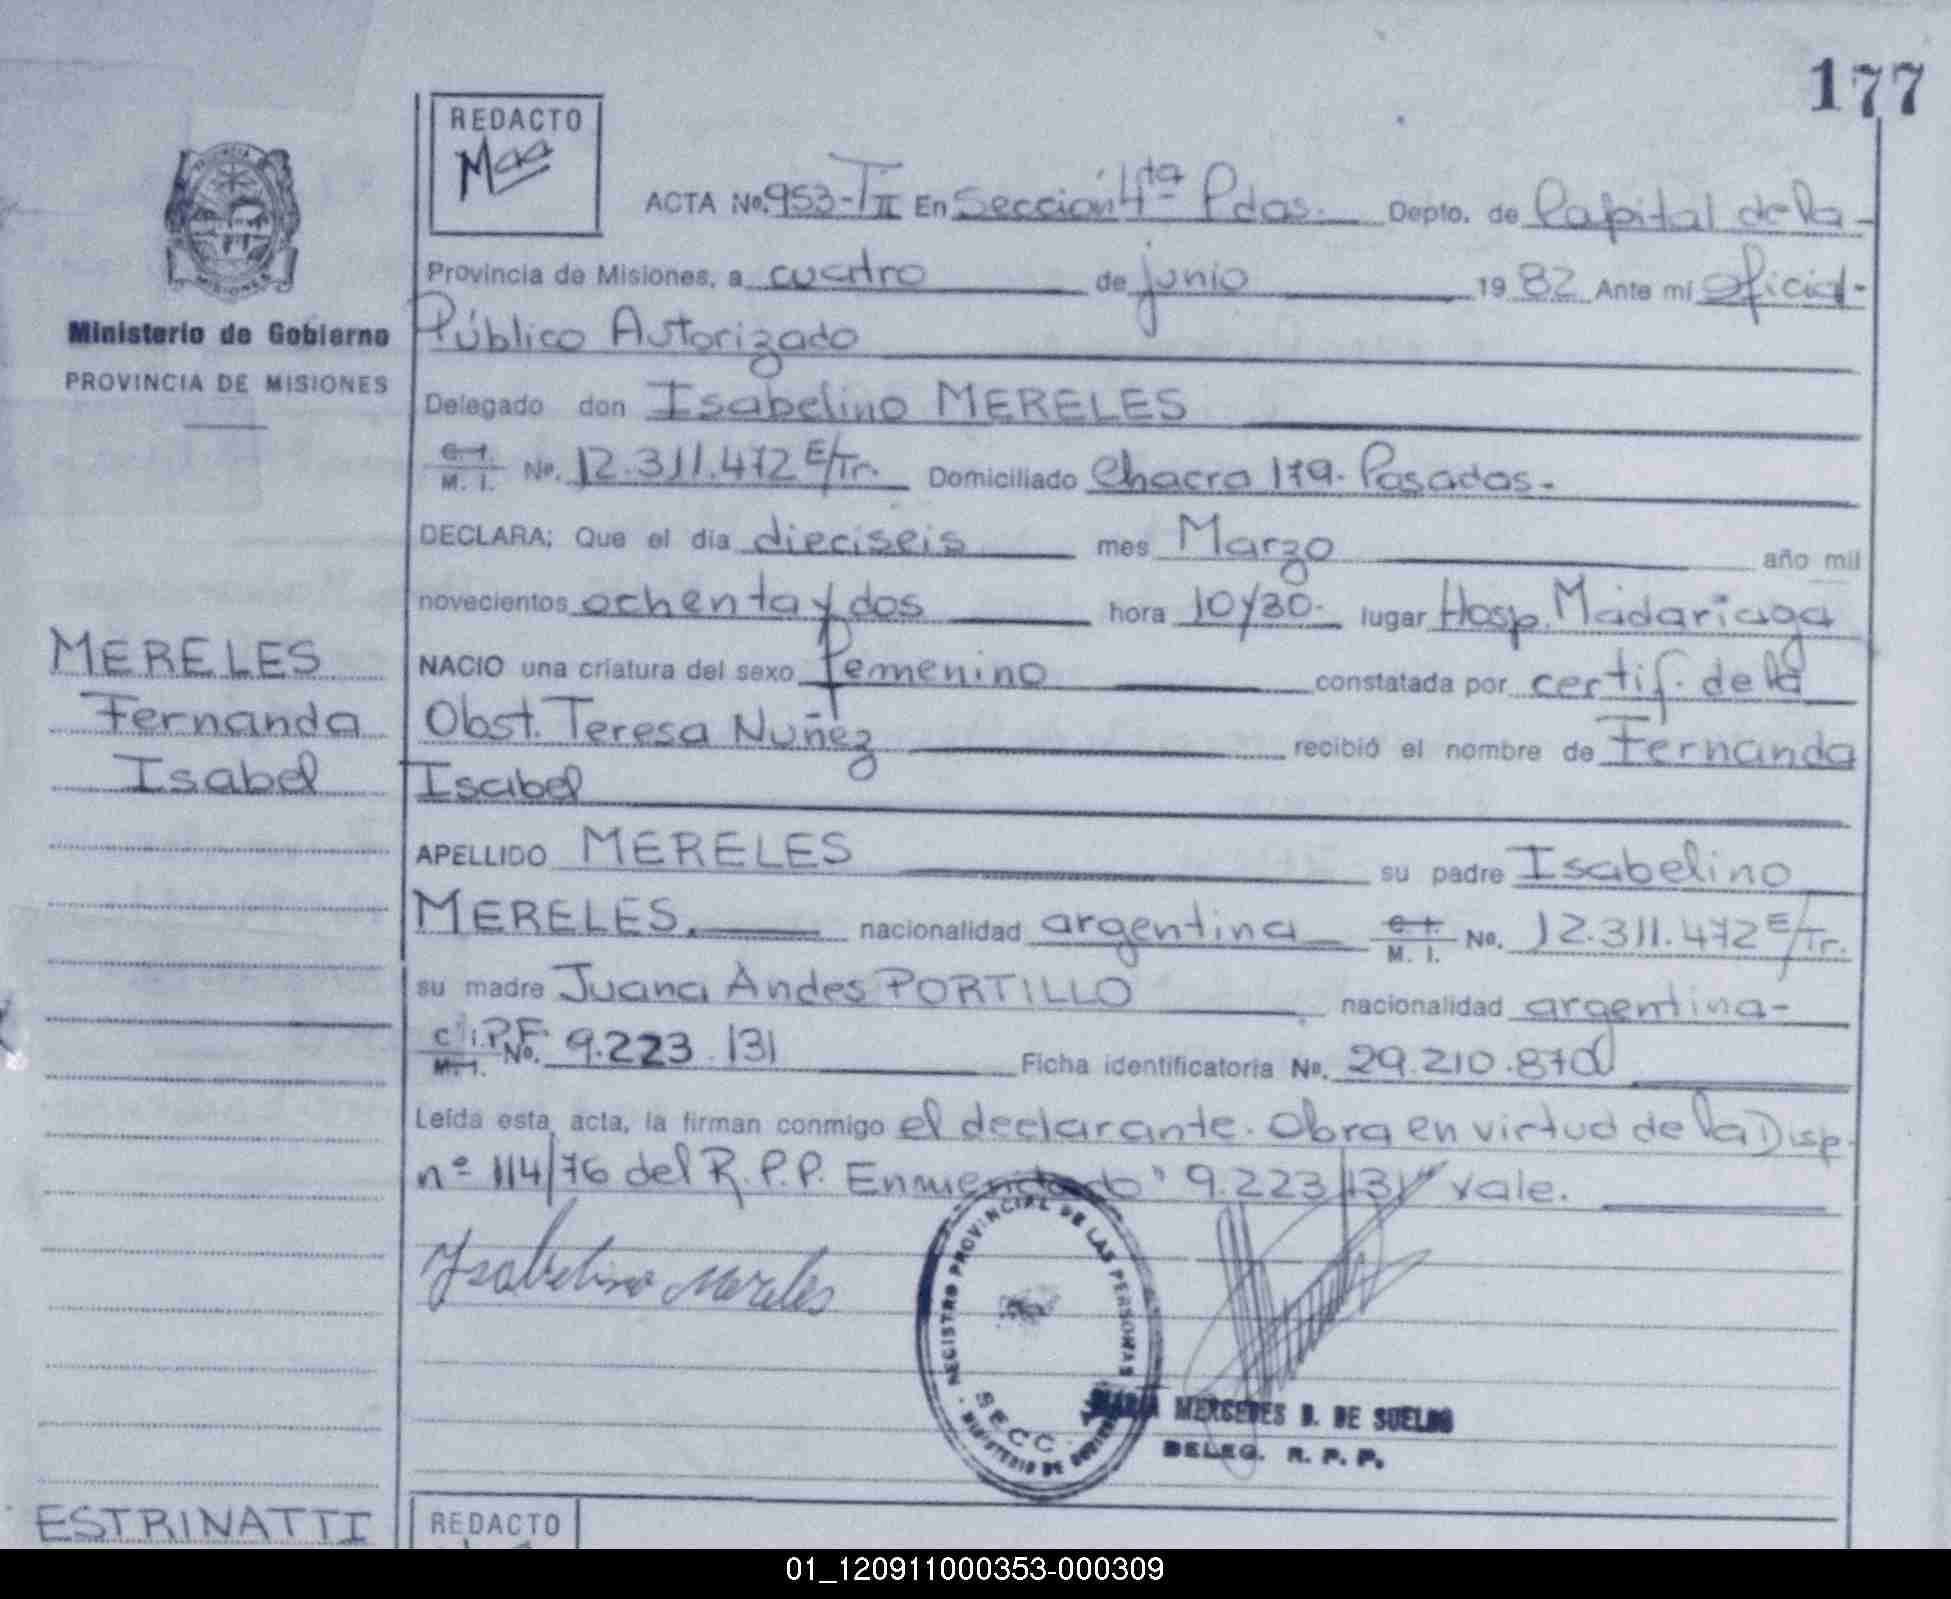 177
REDACTO
PROVINCIA
MISIONES
ACTA No. 953-TII En Sección 4ta Pdas. Depto. de Capital de la
Provincia de Misiones, a cuatro de junio 1982 Ante mi oficial
Ministerio de Gobierno
Público Autorizado
PROVINCIA DE MISIONES
Delegado don Isabelino MERELES
C. I. M. I. No. 12.311.472 E/Tr. Domiciliado Chacra 179. Posadas.
DECLARA; Que el día dieciseis mes Marzo año mil
novecientos ochenta y dos hora 10y30. lugar Hosp. Madariaga
MERELES
NACIO una criatura del sexo femenino constatada por certif. de la
Fernanda
Obst. Teresa Nuñez recibió el nombre de Fernanda
Isabel
Isabel
APELLIDO MERELES su padre Isabelino
MERELES. nacionalidad argentina C. I. M. I. No. 12.311.472 E/Tr.
su madre Juana Andes PORTILLO nacionalidad argentina-
C.I.P.F. M. I. No. 9.223.131 Ficha identificatoria No. 29.210.870
Leída esta acta, la firman conmigo el declarante. Obra en virtud de la Disp.
nº 114/76 del R.P.P. Enmendado "9.223.131" Vale.
Isabelino Mereles
REGISTRO PROVINCIAL DE LAS PERSONAS
SECC.
MINISTERIO DE GOBIERNO
MARIA MERCEDES B. DE SUELDO
DELEG. R. P. P.
ESTRINATTI
REDACTO
01_120911000353-000309